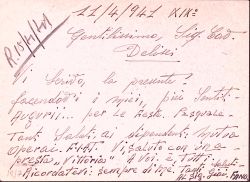 11/4/941 XIX°
R. 15/4/41
Gentilissimo, Sig.
Vi Scrivo, la presente!
facendovi i miei, più Sentiti
Auguri... per le Pasquale
Tanti Saluti, ai dipendenti, vostri
Operai. Vi saluto con una
presta "Vittoria" A Voi, e Tutti
Ricordatevi: sempre di me. Tanti Saluti